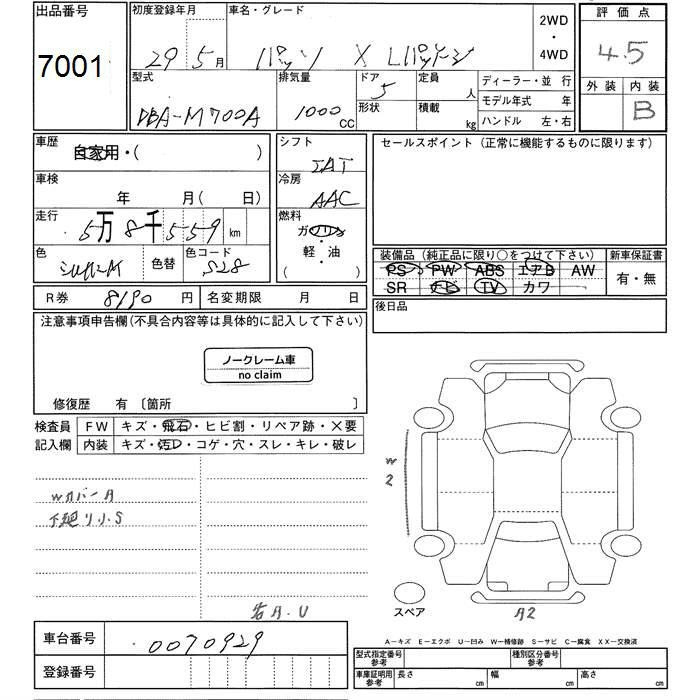 出品番号
7001
初度登録年月
29年 5月
車名・グレード
パッソ X Lパッケージ
2WD
・
4WD
評価点
4.5
外装 内装
B
型式
DBA-M700A
排気量
1000 CC
ドア
5
形状
定員
人
積載
kg
ディーラー・並 行
モデル年式 年
ハンドル 左・右
車歴
自家用・( )
車検
年 月( 日)
走行
5万8千559 km
色
シルバーM
色替
色コード
S28
シフト
IAT
冷房
AAC
燃料
ガソリン
軽・油
( )
セールスポイント (正常に機能するものに限ります)
装備品 (純正品に限り○をつけて下さい)
PS PW ABS エアB AW
SR ナビ TV カワ
新車保証書
有・無
R券 8190 円
名変期限 月 日
後日品
注意事項申告欄(不具合内容等は具体的に記入して下さい)
ノークレーム車
no claim
修復歴 有 〔箇所 〕
検査員
記入欄
FW キズ・飛石・ヒビ割・リペア跡・X要
内装 キズ・汚れ・コゲ・穴・スレ・キレ・破レ
Wカバー A
下廻り小S
右A.U
W
2
スペア
A2
A−キズ E−エクボ U−凹み W−補修跡 S−サビ C−腐食 XX−交換済
車台番号
0070929
登録番号
型式指定番号
参考
種別区分番号
参考
車庫証明用
参考
長さ cm
幅 cm
高さ cm